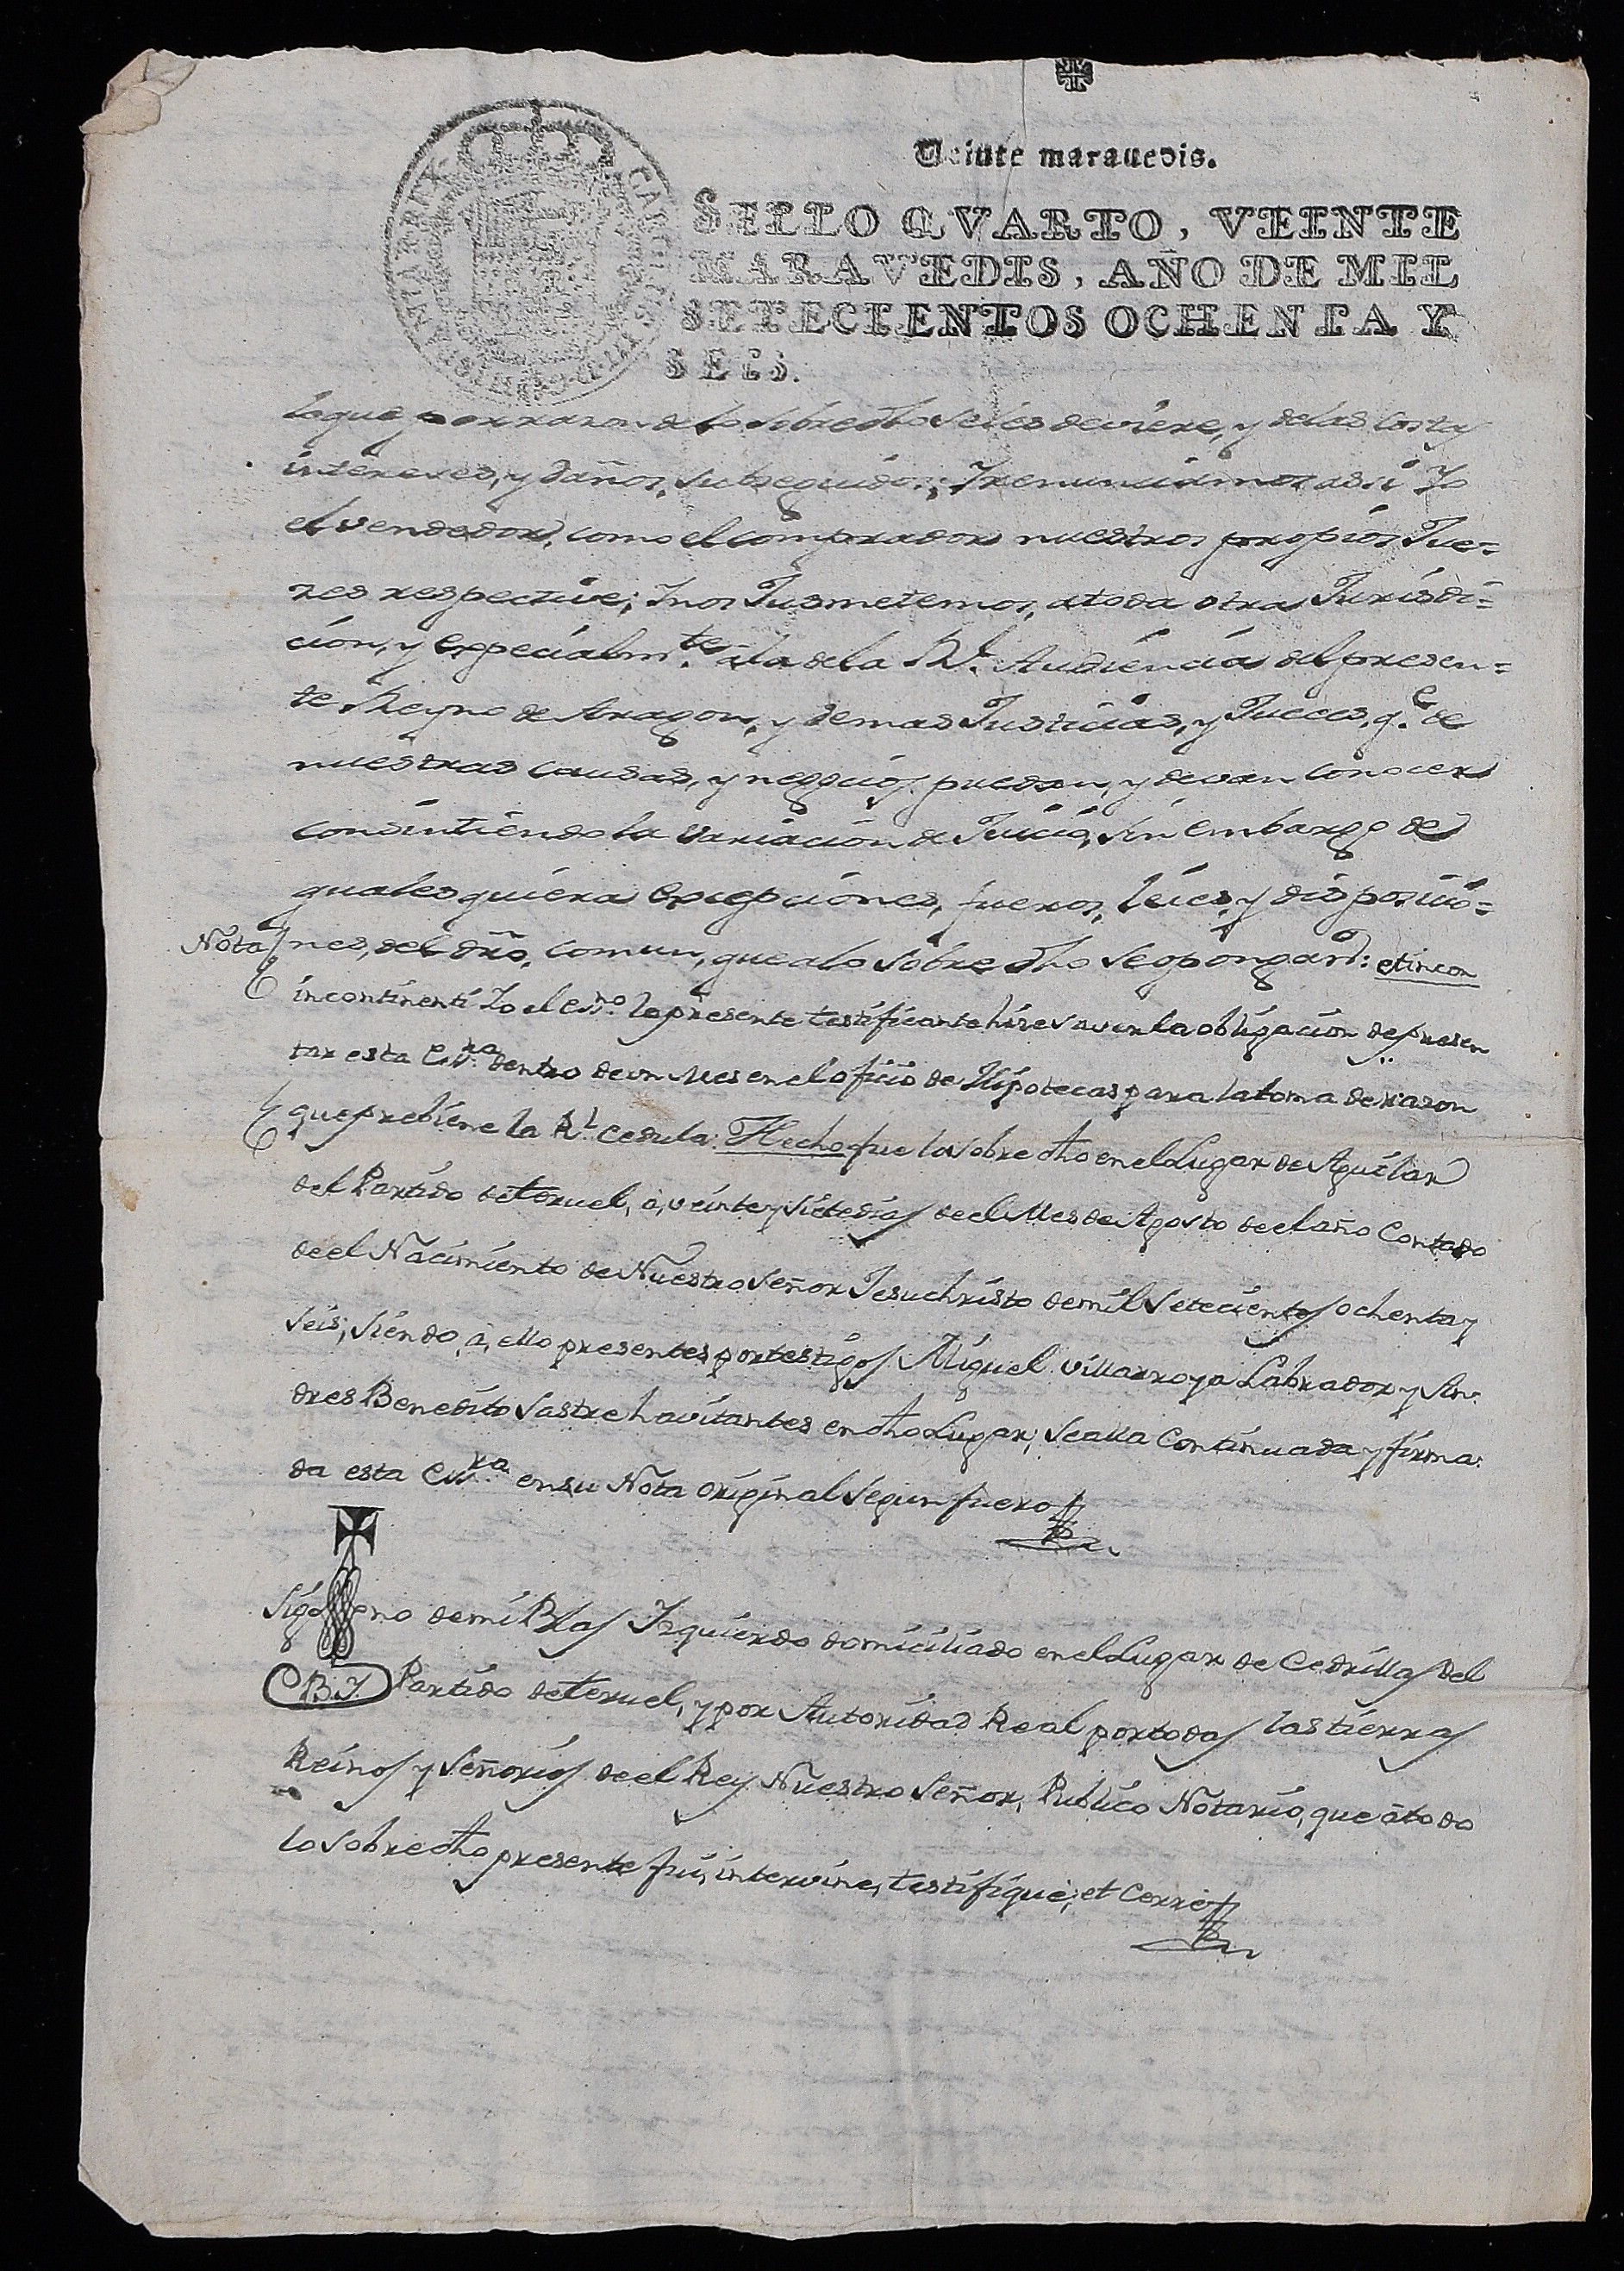 Veinte marauedis.
SELLO QVARTO, VEINTE
MARAVEDIS, AÑO DE MIL
SETECIENTOS OCHENTA Y
SEIS.
lo que por razon de lo sobredho seles deviere, y delas costas
intereses, y daños, subseguidos; Y renunciamos asi Yo
el vendedor, como el comprador nuestros propios Jue=
zes respective; Y nos Jusmetemos, a toda otra Jurisdi=
cion, y especialm.te â la dela Rl. Audiencia del presen=
te Reyno de Aragon, y demas Justicias, y Jueces, q.e de
nuestras causas, y negocios puedan, y devan conocer
consintiendo la variacion de Juicio, sin embargo de
qualesquiera excepciones, fueros, leies, y disposicio=
Nota nes, del dro. comun, que a lo sobre dho se opongan: et incon
incontinenti Yo el esno. la presente testificante hize saver la obligacion de presen
tar esta Esra. dentro de un Mes en el oficio de Hipotecas para la toma de razon
que prebiene la Rl. cedula: Hecho fue lo sobre dho en el Lugar de Aguilar
del Partido de Teruel, â, veinte y siete dias de el Mes de Agosto de el año Contado
de el Nacimiento de Nuestro Señor Jesuchristo de mil setecientos ochenta y
seis; siendo, â, ello presentes por testigos Miguel Villarroya Labrador y An-
dres Benedito Sastre havitantes en dho Lugar; sealla continuada y firma-
da esta Esra. en su Nota original segun fuero
Sig no de mi Blas Izquierdo domiciliado en el Lugar de Cedrillas del
B.Y. Partido de Teruel, y por Autoridad Real por todas las tierras
Reinos y Señorios de el Rey Nuestro Señor, Publico Notario, que â todo
lo sobre dho presente fui, intervine, testifiquè, et Cerrè